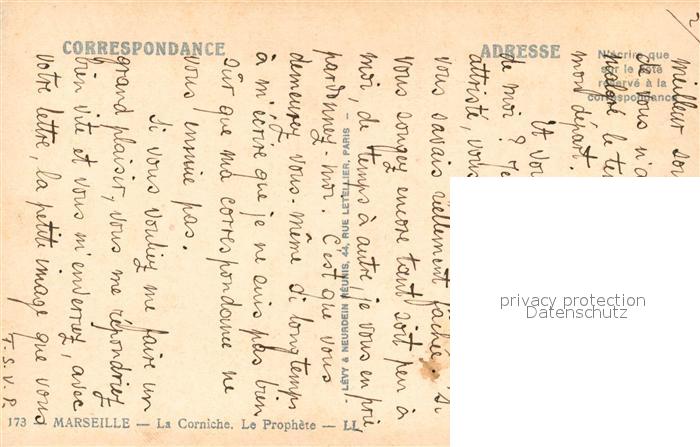 CORRESPONDANCE
ADRESSE
N'écrire que
sur le côté
réservé à la
correspondance
2
meilleur
je vous n'a
malgré le te
mon départ.
Et vou
de moi ? Je
attristé, vous
vous savais réellement fâchée. Si
vous songez encore tant soit peu à
moi, de temps à autre, je vous en prie
pardonnez-moi. C'est que vous
demeurez vous-même si longtemps
à m'écrire que je ne suis pas bien
sûr que ma correspondance ne
vous ennuie pas.
Si vous vouliez me faire un
grand plaisir, vous me répondriez
bien vite et vous m'enverrez, avec
votre lettre, la petite image que vous
T.S.V.P.
LÉVY & NEURDEIN RÉUNIS, 44, RUE LETELLIER, PARIS —
173 MARSEILLE — La Corniche. Le Prophète — LL
privacy protection
Datenschutz